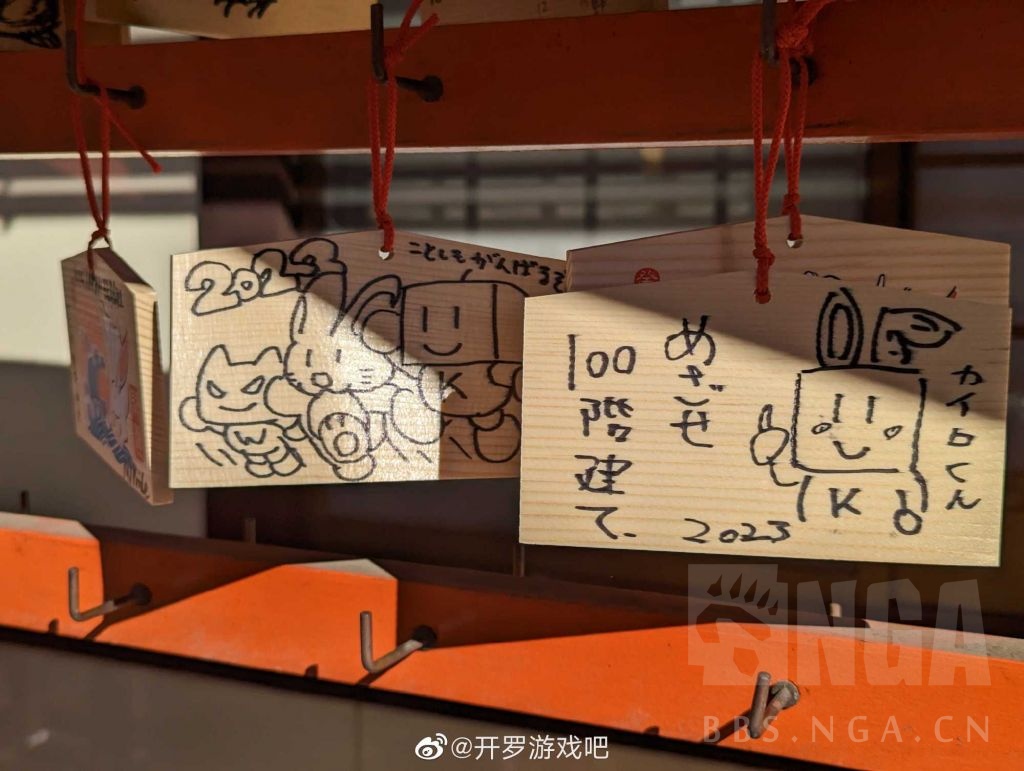 2023
ことしもがんばるぞ
K
めざせ
100階建て
2023
カイロくん
K
NGA
BBS.NGA.CN
@开罗游戏吧